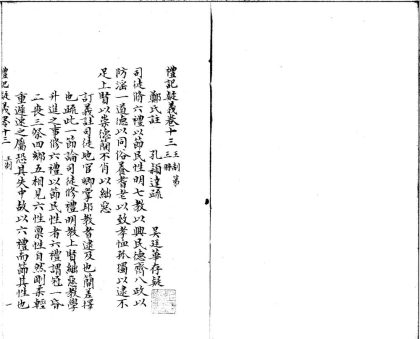 禮記疑義卷十三 王制第三牉
鄭氏註 孔穎達疏 吳廷華存疑
司徒脩六禮以節民性明七教以興民德齊八政以
防淫一道德以同俗養耆老以致孝恤孤獨以逮不
足上賢以崇德簡不肖以絀惡
訂義註司徒地官卿掌邦教者逮及也簡差擇
也疏此一節論司徒脩禮明教上賢絀惡教學
升進之事脩六禮以節民性者六禮謂冠一昏
二喪三祭四鄉五相見六性稟性自然剛柔輕
重遲速之屬恐其失中故以六禮而節其性也
禮記疑義卷十三 王制 一